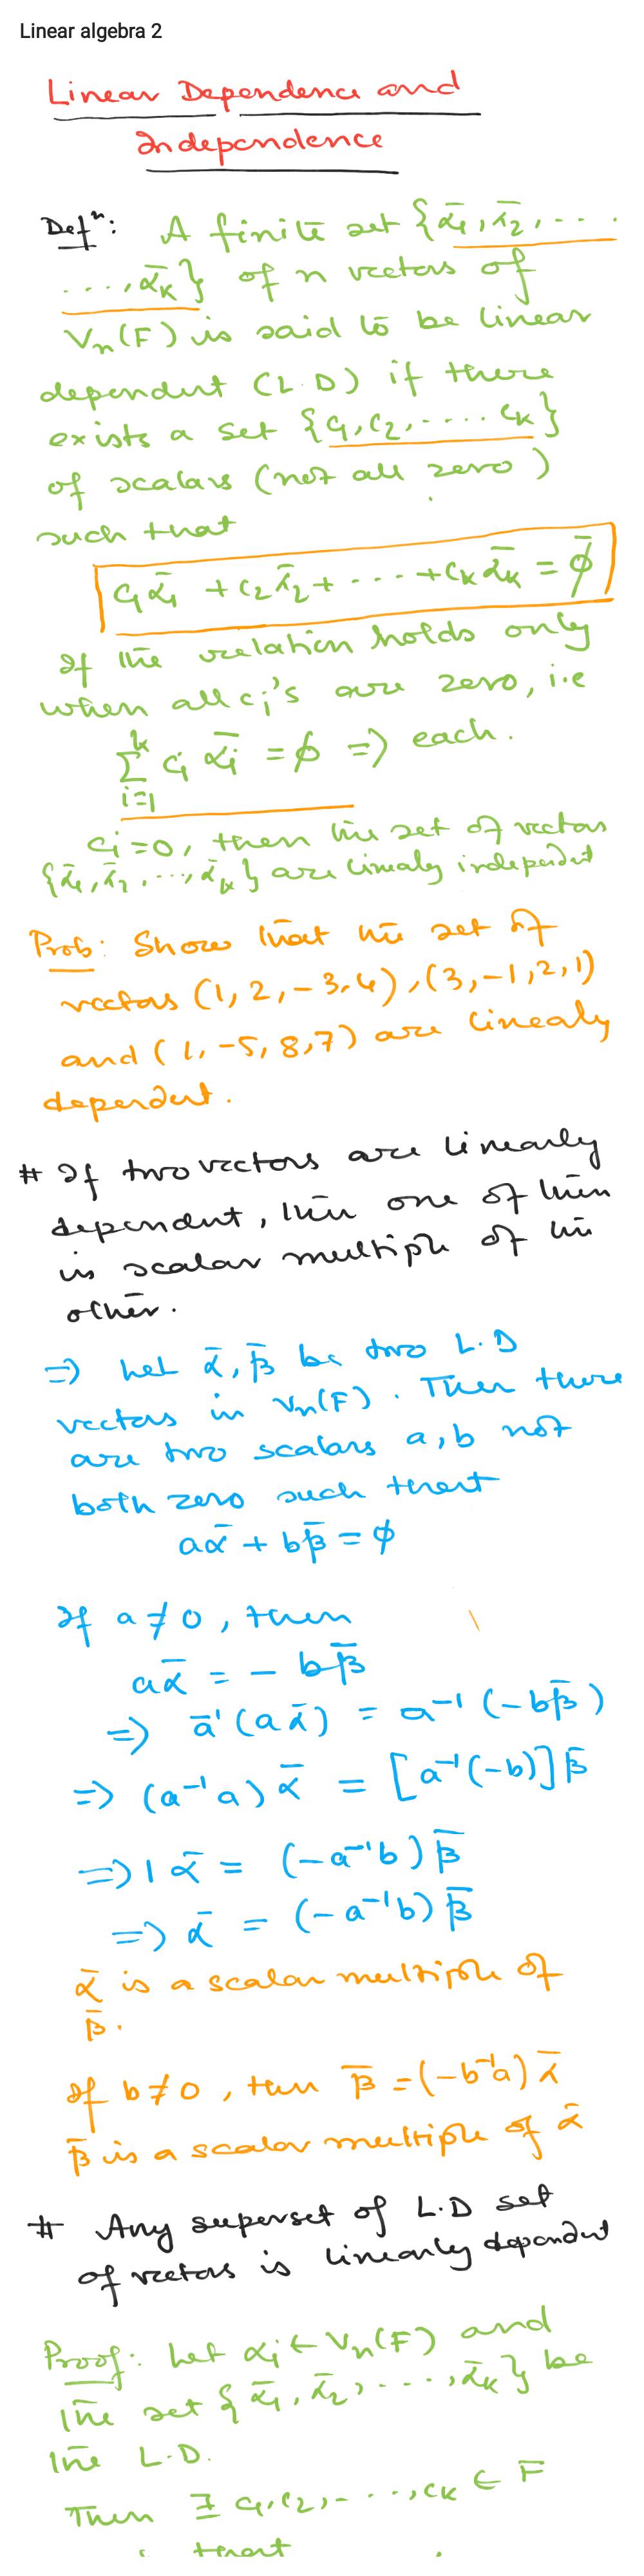 Linear algebra 2
Linear Dependence and
Independence
Defⁿ: A finite set {ᾱ₁, ᾱ₂, ....
...., ᾱₖ} of n vectors of
Vₙ(F) is said to be linear
dependent (L.D) if there
exists a set {c₁, c₂, ..... cₖ}
of scalars (not all zero)
such that
c₁ᾱ₁ + c₂ᾱ₂ + ... + cₖᾱₖ = ϕ̄
If the relation holds only
when all cᵢ's are zero, i.e
∑ᵢ₌₁ᵏ cᵢ ᾱᵢ = ϕ => each.
cᵢ = 0, then the set of vectors
{ᾱ₁, ᾱ₂, ..., ᾱₖ} are linealy independent
Prob: Show that the set of
vectors (1, 2, -3, 4), (3, -1, 2, 1)
and (1, -5, 8, 7) are linealy
dependent.
# If two vectors are linearly
dependent, then one of them
is scalar multiple of the
other.
=> Let ᾱ, β̄ be two L.D
vectors in Vₙ(F). Then there
are two scalars a, b not
both zero such that
aᾱ + bβ̄ = ϕ
If a ≠ 0, then
aᾱ = - bβ̄
=> a⁻¹(aᾱ) = a⁻¹(-bβ̄)
=> (a⁻¹a)ᾱ = [a⁻¹(-b)]β̄
=> 1ᾱ = (-a⁻¹b)β̄
=> ᾱ = (-a⁻¹b)β̄
ᾱ is a scalar multiple of
β̄.
If b ≠ 0, then β̄ = (-b⁻¹a)ᾱ
β̄ is a scalar multiple of ᾱ
# Any superset of L.D set
of vectors is linearly dependent
Proof: Let αᵢ ∈ Vₙ(F) and
the set {ᾱ₁, ᾱ₂, ..., ᾱₖ} be
the L.D.
Then ∃ c₁, c₂, ..., cₖ ∈ F
that